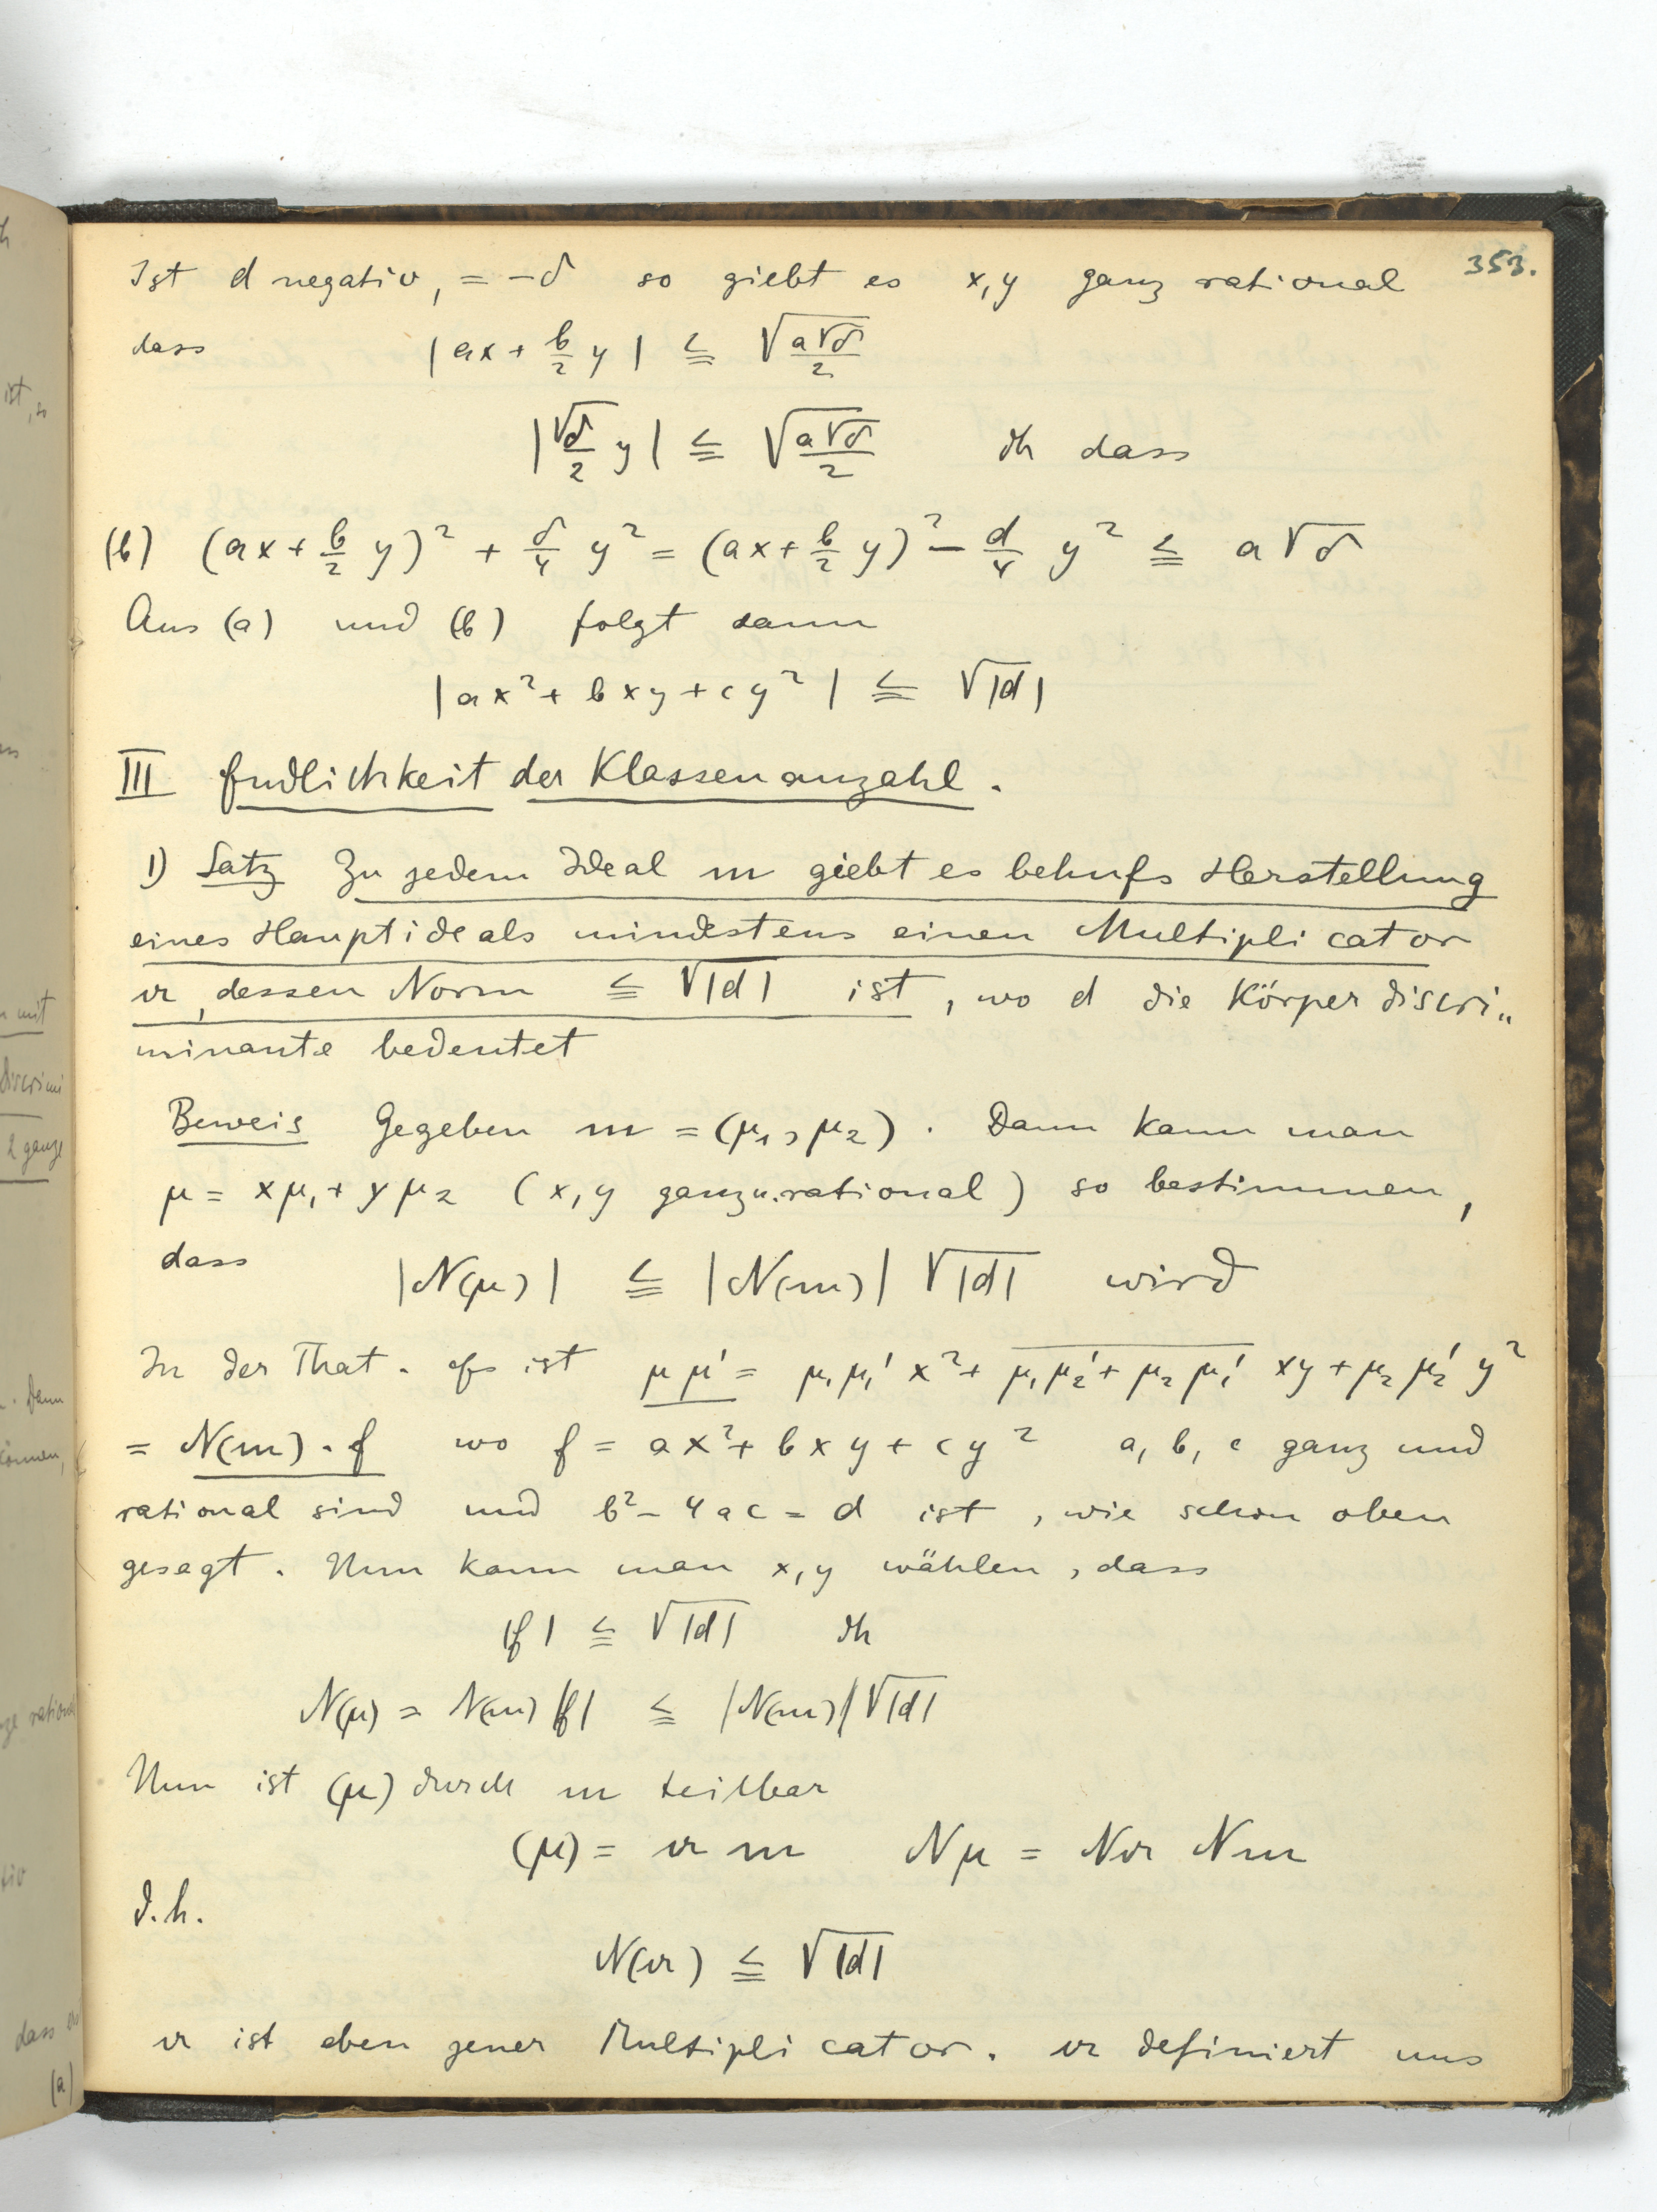 353.
Ist d negativ, = -δ so giebt es x,y ganz rational
dass |ax + b/2 y| ≦ √(a√δ/2)
|√δ/2 y| ≦ √(a√δ/2) dh dass
(b) (ax + b/2 y)² + δ/4 y² = (ax + b/2 y)² - d/4 y² ≦ a√δ
Aus (a) und (b) folgt dann
|ax² + bxy + cy²| ≦ √|d|
III Endlichkeit der Klassenanzahl.
1) Satz Zu jedem Ideal m giebt es behufs Herstellung
eines Hauptideals mindestens einen Multiplicator
n, dessen Norm ≦ √|d| ist, wo d die Körperdiscri„
minante bedeutet
Beweis Gegeben m = (μ₁, μ₂). Dann kann man
μ = xμ₁ + yμ₂ (x,y ganz u. rational) so bestimmen,
dass |N(μ)| ≦ |N(m)| √|d| wird
In der That. Es ist μμ' = μ₁μ₁' x² + μ₁μ₂' + μ₂μ₁' xy + μ₂μ₂' y²
= N(m). f wo f = ax² + bxy + cy² a, b, c ganz und
rational sind und b² - 4ac = d ist, wie schon oben
gesagt. Nun kann man x,y wählen, dass
|f| ≦ √|d| dh
N(μ) = N(m) |f| ≦ |N(m)| √|d|
Nun ist (μ) durch m teilbar
(μ) = n m Nμ = Nn Nm
d.h.
N(n) ≦ √|d|
n ist eben jener Multiplicator. n definiert uns
ist, so
mit
Discrimi
2 ganze
. Dann
können,
rational
dass
(a)